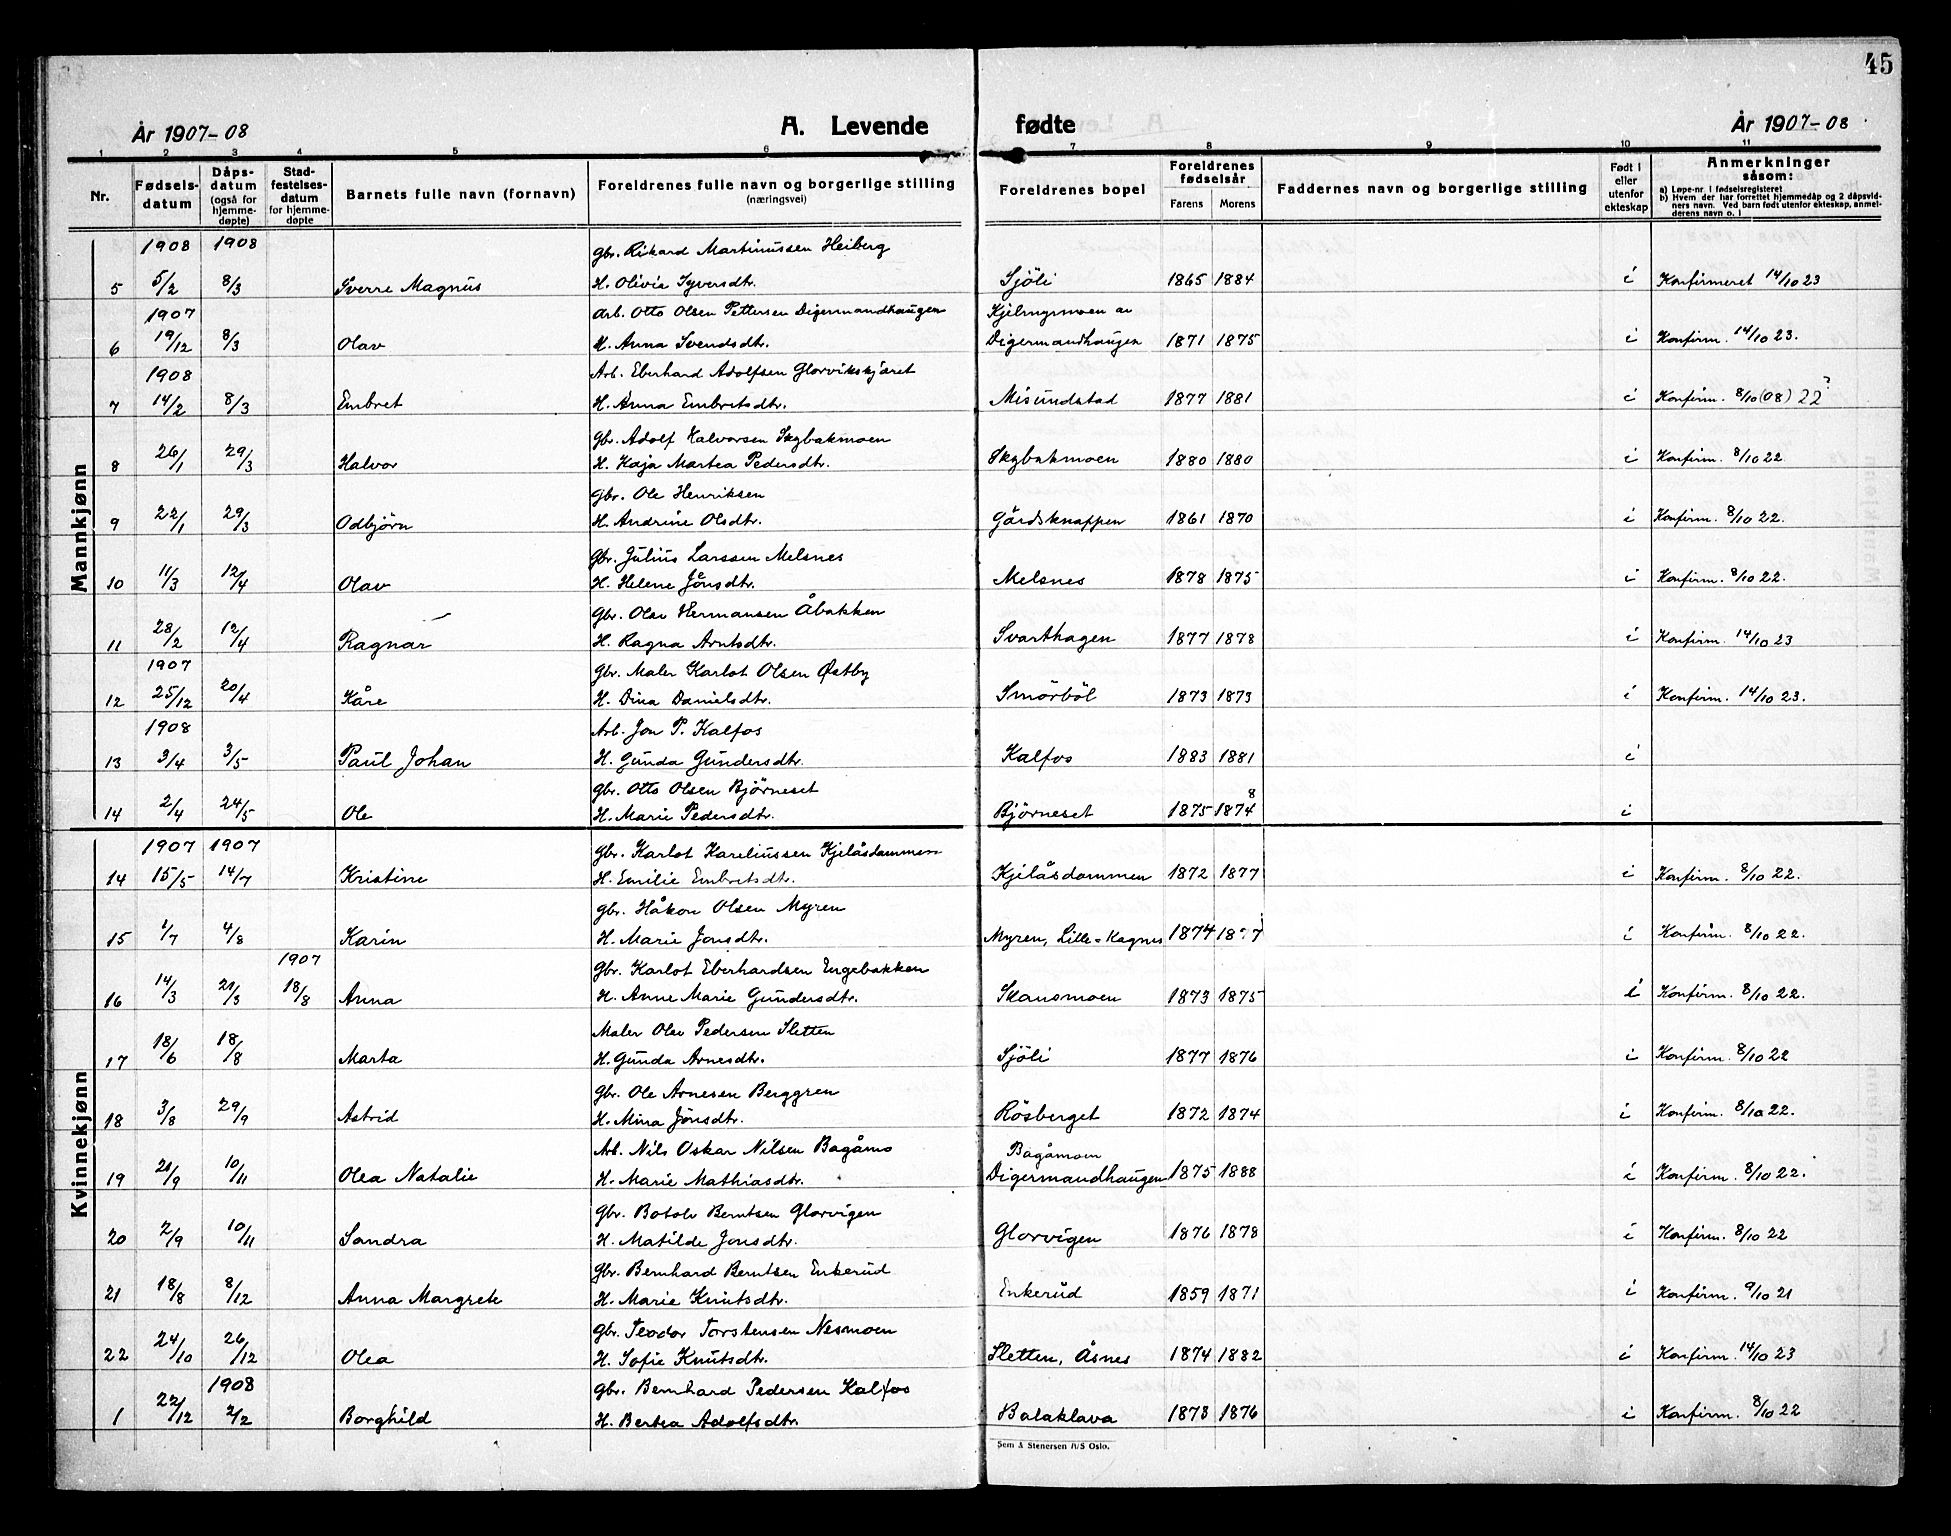 45
År 1907-08 A. Levende fødte År 1907-08
1 2 3 4 5 6 7 8 9 10 11
Nr. Fødsels-datum Dåps-datum (også for hjemme-døpte) Stad-festelses-datum for hjemme-døpte Barnets fulle navn (fornavn) Foreldrenes fulle navn og borgerlige stilling (næringsvei) Foreldrenes bopel Foreldrenes fødselsår Farens Morens Faddernes navn og borgerlige stilling Født i eller utenfor ekteskap Anmerkninger såsom: a) Løpe-nr. i fødselsregisteret b) Hvem der har forrettet hjemmedåp og 2 dåpsvidners navn. Ved barn født utenfor ekteskap, anmelderens navn o. l
Mannkjønn
1908 1908 Gbr. Rikard Martinussen Heiberg
5 5/2 8/3 Sverre Magnus H. Olivia Syversdtr. Sjöli 1865 1884 i Konfirmeret 14/10 23
1907 Arb. Otto Olsen Pettersen Digermandhaugen Kjelmyrmoen av
6 19/12 8/3 Olav H. Anna Svendsdtr. Digermandhaugen 1871 1875 i Konfirm. 14/10 23.
1908 Arb. Eberhard Adolfsen Glorvikskjæret
7 14/2 8/3 Embret H. Anna Embretsdtr. Misundstad 1877 1881 i Konfirm. 8/10 (08) 22 ?
Gbr. Adolf Halvorsen Skybakmoen
8 26/1 29/3 Halvor H. Kaja Martea Pedersdtr. Skybakmoen 1880 1880 i Konfirm. 8/10 22.
Gbr. Ole Henriksen
9 22/1 29/3 Odbjörn H. Andrine Olsdtr. Gårdsknappen 1861 1870 i Konfirm. 8/10 22.
Gbr. Julius Larssen Melsnes
10 11/3 12/4 Olav H. Helene Jönsdtr. Melsnes 1878 1875 i Konfirm. 8/10 22.
Gbr. Olav Hermansen Åbakken
11 28/2 12/4 Ragnar H. Ragna Arntsdtr. Svarthagen 1877 1878 i Konfirm. 14/10 23
1907 Gbr. Maler Karlot Olsen Østby
12 25/12 20/4 Kåre H. Dina Danielsdtr. Smörböl 1873 1873 i Konfirm. 14/10 23.
1908 Arb. Jon P. Kalfos
13 3/4 3/5 Paul Johan H. Gunda Gundersdtr. Kalfos 1883 1881 i
Gbr. Otto Olsen Björneset 8
14 2/4 24/5 Ole H. Marie Pedersdtr. Björneset 1875 1874 i
Kvinnekjønn
1907 1907 Gbr. Karlot Kareliussen Kjelåsdammen
14 15/5 14/7 Kristine H. Emilie Embretsdtr. Kjelåsdammen 1872 1877 i Konfirm. 8/10 22.
Gbr. Håkon Olsen Myren
15 1/7 4/8 Karin H. Marie Jonsdtr. Myren, Lille-Kagnes 1874 1877 i Konfirm. 8/10 22.
1907 Gbr. Karlot Eberhardsen Engebakken
16 14/3 21/3 18/8 Anna H. Anne Marie Gundersdtr. Skansmoen 1873 1875 i Konfirm. 8/10 22.
Maler Olav Pedersen Sletten
17 18/6 18/8 Marta H. Gunda Arnesdtr. Sjöli 1877 1876 i Konfirm. 8/10 22
Gbr. Ole Arnesen Berggren
18 3/8 29/9 Astrid H. Mina Jönsdtr. Rösberget 1872 1874 i Konfirm. 8/10 22.
Arb. Nils Oskar Nilsen Bagåmo Bagåmoen
19 21/9 10/11 Olea Natalie H. Marie Mathiasdtr. Digermandhaugen 1875 1888 i Konfirm. 8/10 22.
Gbr. Botolv Berntsen Glorvigen
20 2/9 10/11 Sandra H. Matilde Jonsdtr. Glorvigen 1876 1878 i Konfirm. 8/10 22
Gbr. Bernhard Berntsen Enkerud
21 18/8 8/12 Anna Margrete H. Marie Knutsdtr. Enkerud 1859 1871 i Konfirm. 9/10 21
Gbr. Teodor Torstensen Nesmoen
22 24/10 26/12 Olea H. Sofie Knutsdtr. Sletten, Åsnes 1874 1882 i Konfirm. 14/10 23
1908 Gbr. Bernhard Pedersen Kalfos
1 22/12 2/2 Borghild H. Bertea Adolfsdtr. Balaklava 1873 1876 i Konfirm. 8/10 22
Sem & Stenersen A/S Oslo.